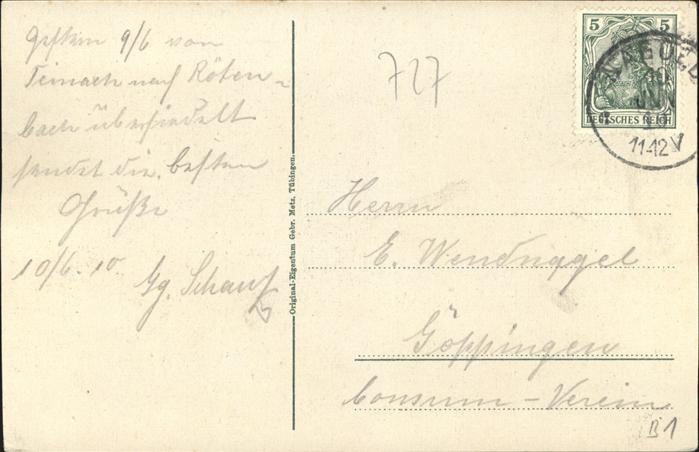 Gestern 9/6 von
Teinach nach Röten-
bach übersiedelt
sendet die besten
Grüße
10/6.10.
Gg. Schauf
Original-Eigentum Gebr. Metz, Tübingen.
727
5 5
DEUTSCHES REICH
NAGOLD
10
JUN
11-12V
Herrn
E. Wendnagel
Göppingen
Consum-Verein
B1